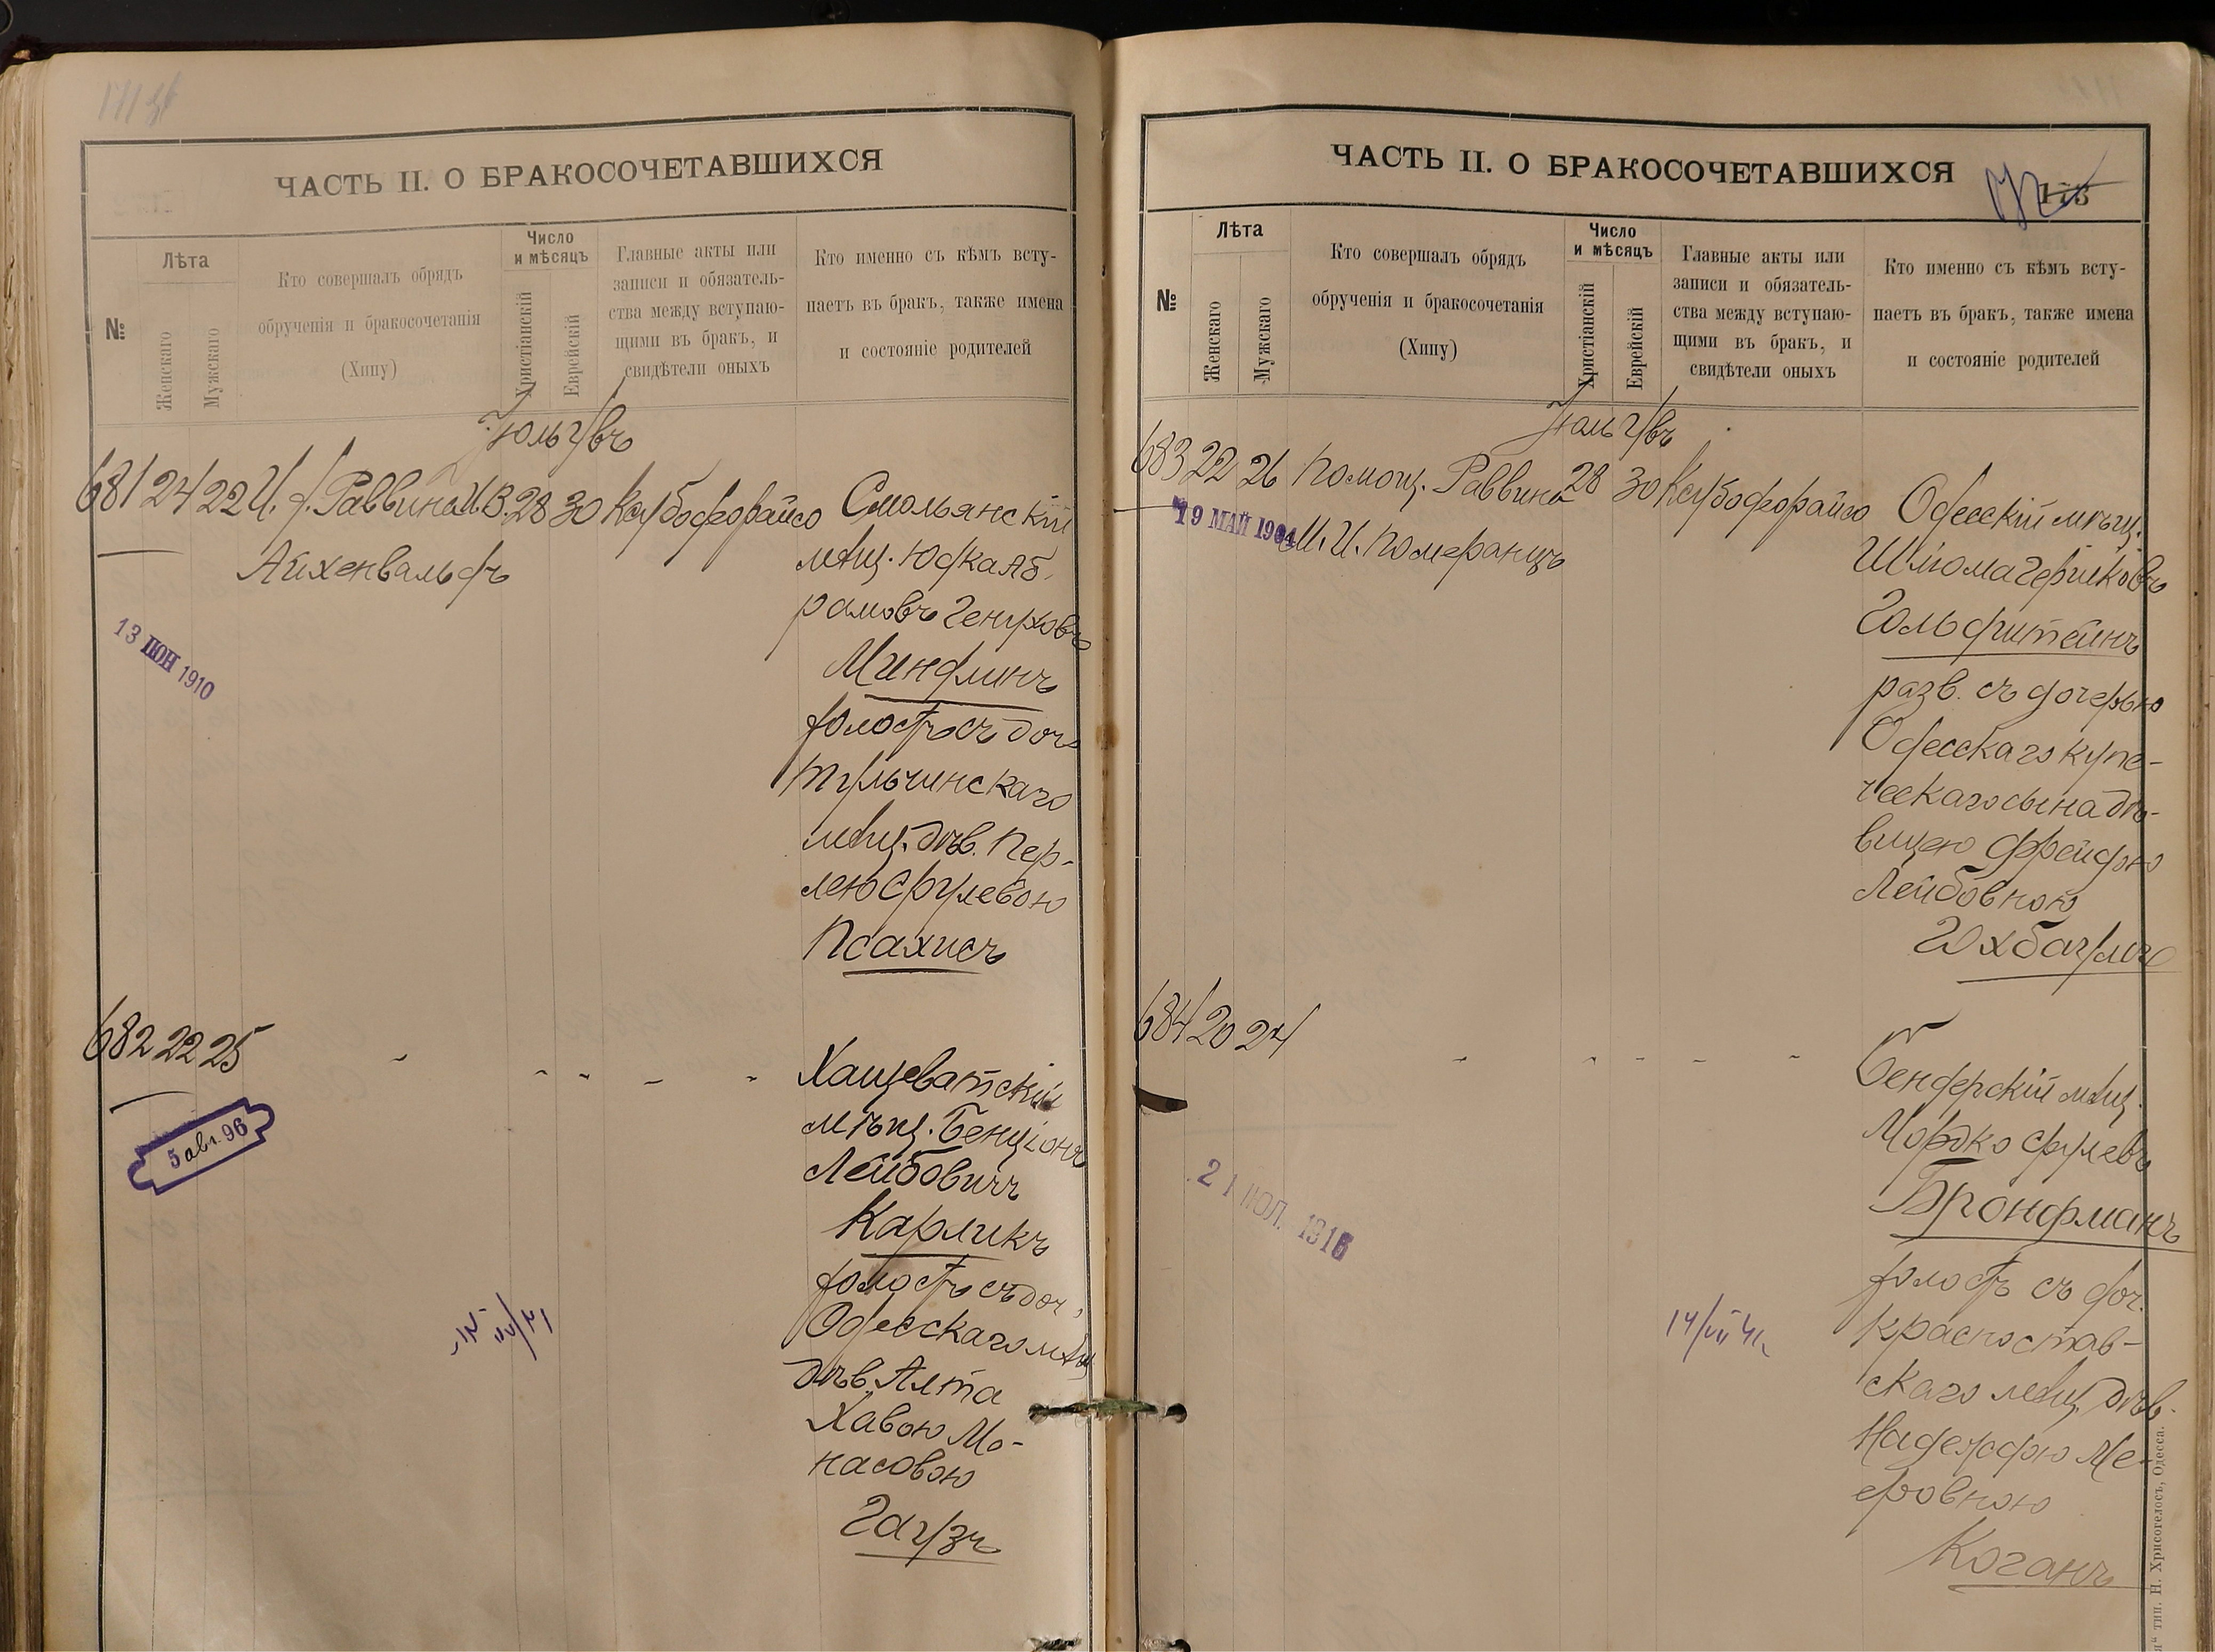 ЧАСТЬ II. О БРАКОСОЧЕТАВШИХСЯ
№
Лѣта
Женскаго
Мужскаго
Кто совершалъ обрядъ
обрученія и бракосочетанія
(Хипу)
Число
и мѣсяцъ
Христіанскій
Еврейскій
Главные акты или
записи и обязатель-
ства между вступаю-
щими въ бракъ, и
свидѣтели оныхъ
Кто именно съ кѣмъ всту-
паетъ въ бракъ, также имена
и состояніе родителей
681 24 22 И. д. Раввина И. В. 28 30 Смольянскій
Айхенвальдъ
мѣщ. Юдка Аб-
рамовъ
Миндлинъ
холостъ съ доч.
Тульчинскаго
мѣщ. дѣв. Пер-
лею Срулевою
Псахисъ
13 ІЮН 1910
682 22 25
Хащеватскій
мѣщ. Бенціонъ
Лейбовичъ
Карликъ
холостъ съ доч.
Одесскаго мѣщ.
дѣв. Алта
Хавою Мо-
насовою
Гаузъ
5 авг. 96
ЧАСТЬ II. О БРАКОСОЧЕТАВШИХСЯ
173
№
Лѣта
Женскаго
Мужскаго
Кто совершалъ обрядъ
обрученія и бракосочетанія
(Хипу)
Число
и мѣсяцъ
Христіанскій
Еврейскій
Главные акты или
записи и обязатель-
ства между вступаю-
щими въ бракъ, и
свидѣтели оныхъ
Кто именно съ кѣмъ всту-
паетъ въ бракъ, также имена
и состояніе родителей
683 22 26 Помощ. Раввина 28 30 Одесскій мѣщ.
19 МАЙ 1904
М. И. Померанцъ
Шлiома Герш­ковъ
Гольдштейнъ
разв. съ дочерью
Одесскаго купе-
ческаго сына дѣ-
вицею Фрейдою
Лейбовною
684 20 24
Бендерскій мѣщ.
Мордко Срулевъ
Бронфманъ
холостъ съ доч.
Красностав-
скаго мѣщ. дѣв.
Надеждою Ме-
еровною
Коганъ
21 ІЮЛ. 1916
14/VII 41
тип. Н. Хрисогелосъ, Одесса.